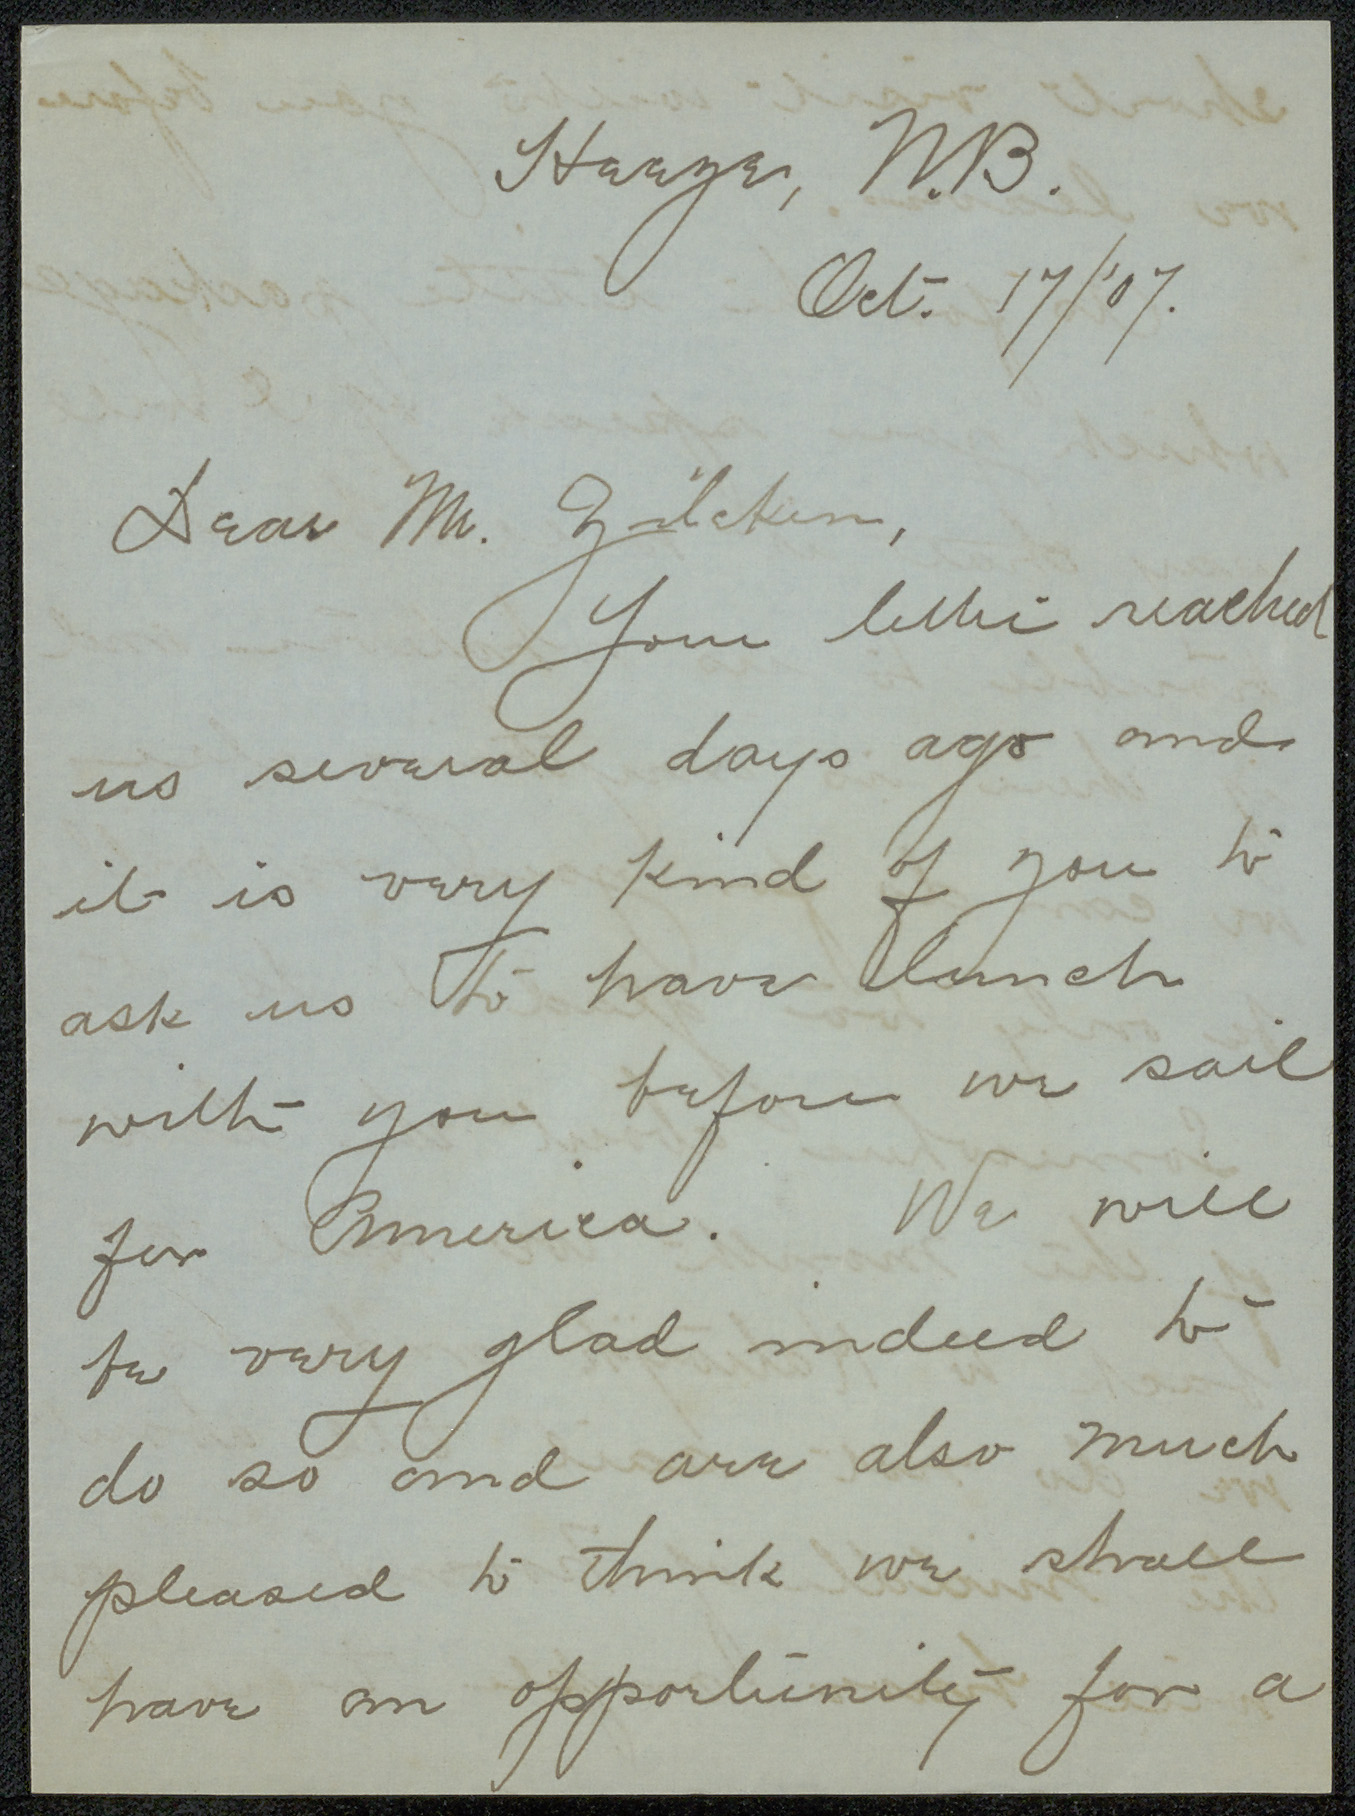 Heeze, N.B.
Oct. 17/'07.
Dear Mr. Zilcken,
Your letter reached
us several days ago and
it is very kind of you to
ask us to have lunch
with you before we sail
for America. We will
be very glad indeed to
do so and are also much
pleased to think we shall
have an opportunity for a